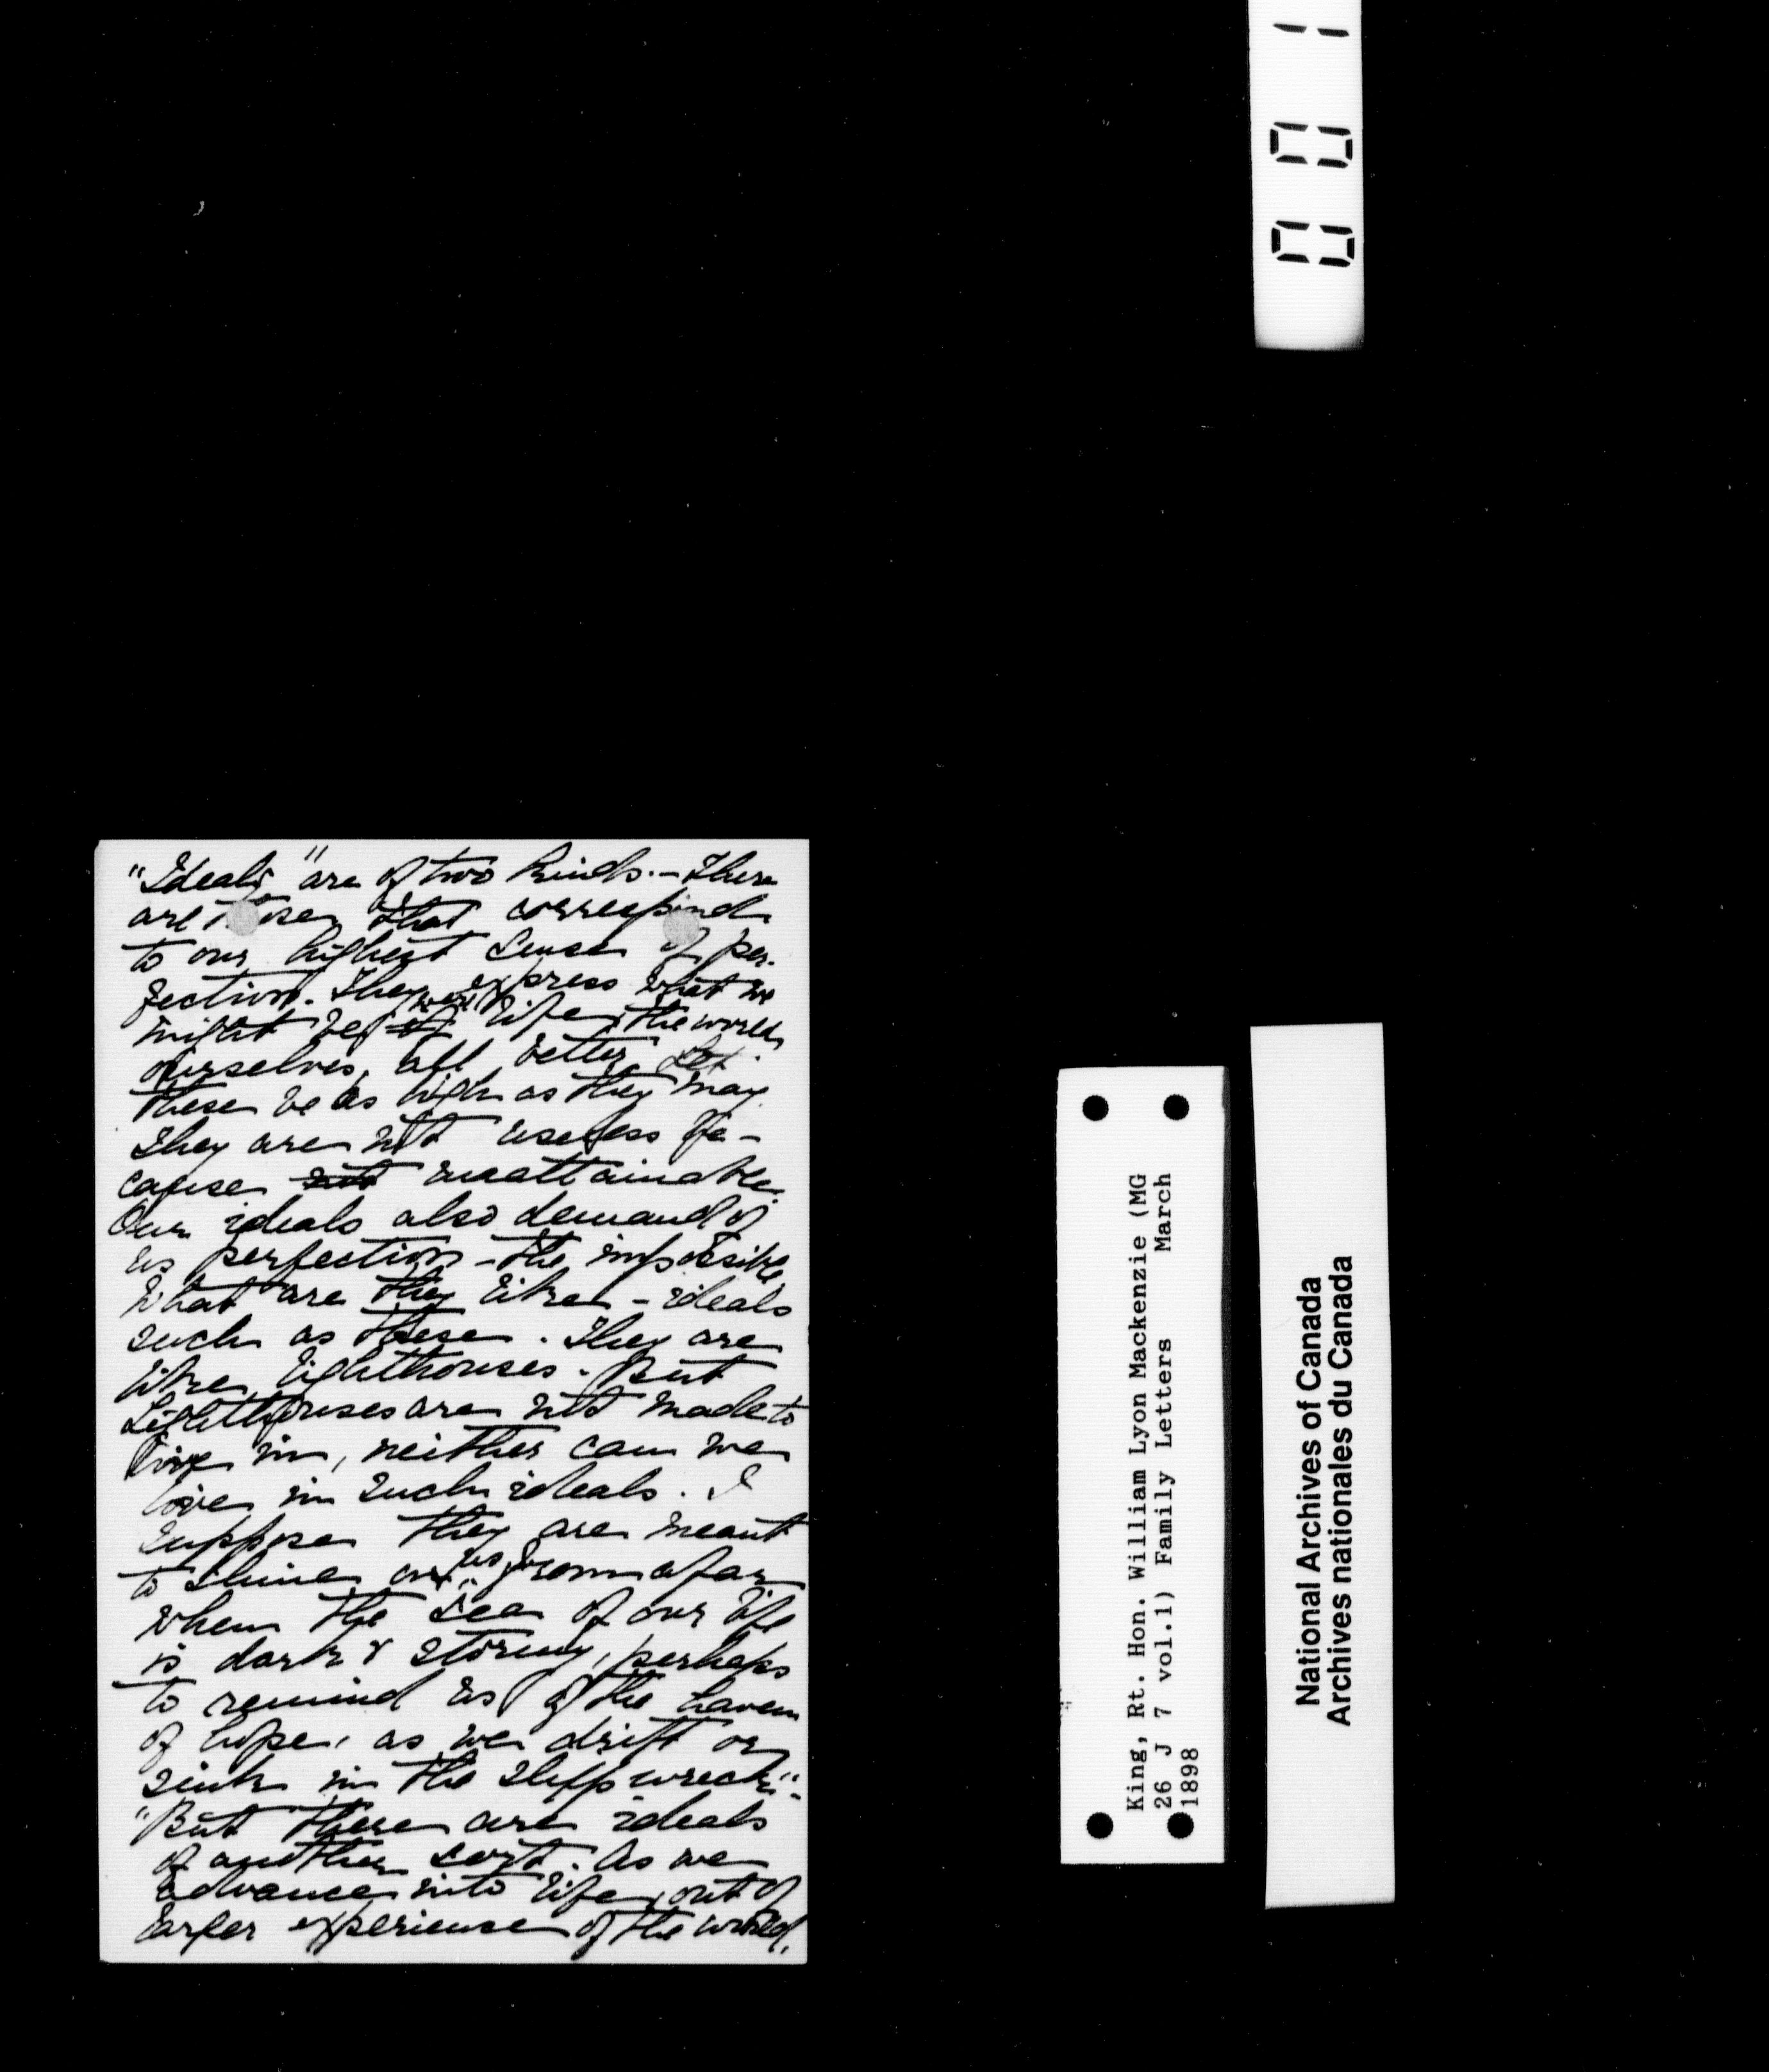 "Ideals" are of two kinds. - There
are those that correspond
to our highest sense of per-
fection. They express what we
might be, were life, the world,
ourselves, all better. Let
these be as high as they may
They are not useless be-
cause not unattainable.
Our ideals also demand of
us perfection - the impossible,
What are they like - ideals
such as these. They are
like lighthouses. But
Lighthouses are not made to
live in, neither can we
live in such ideals. I
suppose they are meant
to shine on us from afar
when the sea of our life
is dark & stormy, perhaps
to remind us of the haven
of hope, as we drift or
sink in the shipwreck".
"But there are ideals
of another sort. As we
advance into life, out of
larger experience of the world,
001
King, Rt. Hon. William Lyon Mackenzie (MG
26 J 7 vol.1) Family Letters March
1898
National Archives of Canada
Archives nationales du Canada